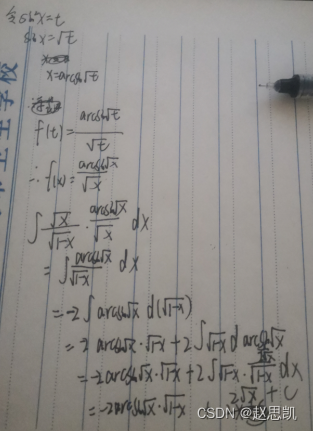 令 sin²x = t
sin x = √t
x = arcsin√t
f(t) = arcsin√t / √t
∴ f(x) = arcsin√x / √x
∫ √x / √1-x · arcsin√x / √x dx
= ∫ arcsin√x / √1-x dx
= -2 ∫ arcsin√x d(√1-x)
= -2 arcsin√x · √1-x + 2 ∫ √1-x d arcsin√x
= -2 arcsin√x · √1-x + 2 ∫ √1-x · 1/√1-x dx
= -2 arcsin√x · √1-x + 2√x + C
CSDN @赵思凯